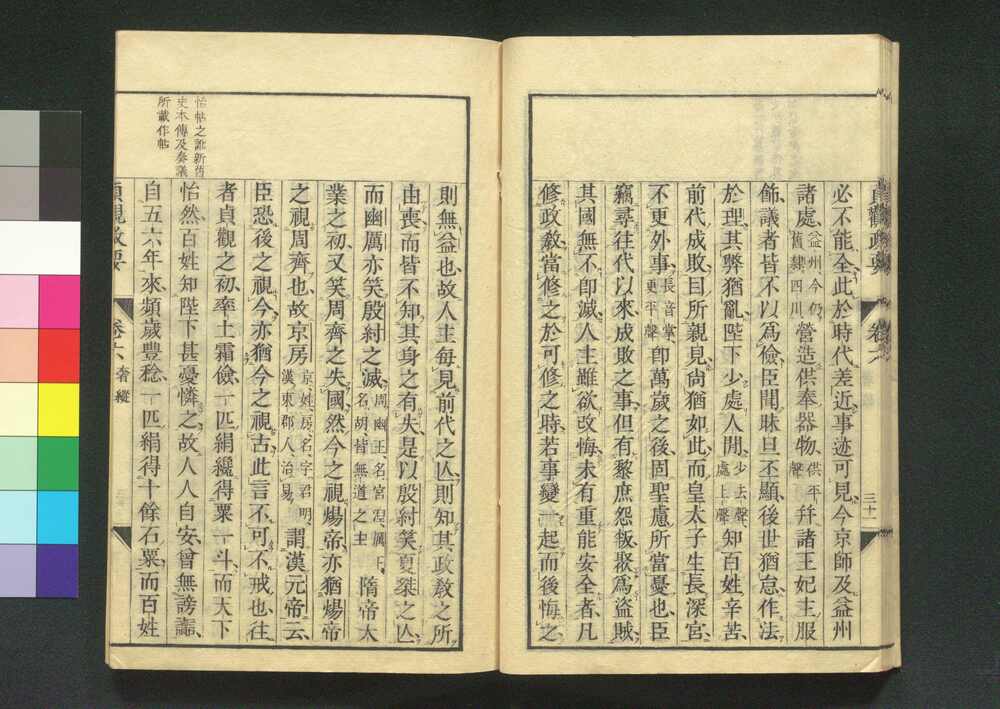 貞觀政要
卷六
三十一
必不能全此於時代差近事迹可見今京師及益州
諸處益州今仍舊隸四川營造供奉器物供平聲幷諸王妃主服
飾議者皆不以爲儉臣聞昧旦丕顯後世猶怠作法
於理其弊猶亂陛下少處人閒少去聲處上聲知百姓辛苦
前代成敗目所親見尙猶如此而皇太子生長深宮
不更外事長音掌更平聲卽萬歲之後固聖慮所當憂也臣
竊尋往代以來成敗之事但有黎庶怨叛聚爲盜賊
其國無不卽滅人主雖欲改悔未有重能安全者凡
修政敎當修之於可修之時若事變一起而後悔之
則無益也故人主每見前代之亾則知其政敎之所
由喪而皆不知其身之有失是以殷紂笑夏桀之亾
而幽厲亦笑殷紂之滅周幽王名宮湼厲王名胡皆無道之主隋帝大
業之初又笑周齊之失國然今之視煬帝亦猶煬帝
之視周齊也故京房京姓房名字君明漢東郡人治易謂漢元帝云
臣恐後之視今亦猶今之視古此言不可不戒也往
者貞觀之初率土霜儉一匹絹纔得粟一斗而天下
怡然百姓知陛下甚憂憐之故人人自安曾無謗讟
自五六年來頻歲豐稔一匹絹得十餘石粟而百姓
怡帖之訛新舊
史本傳及奏議
所載作帖
貞觀政要
卷六
奢縱